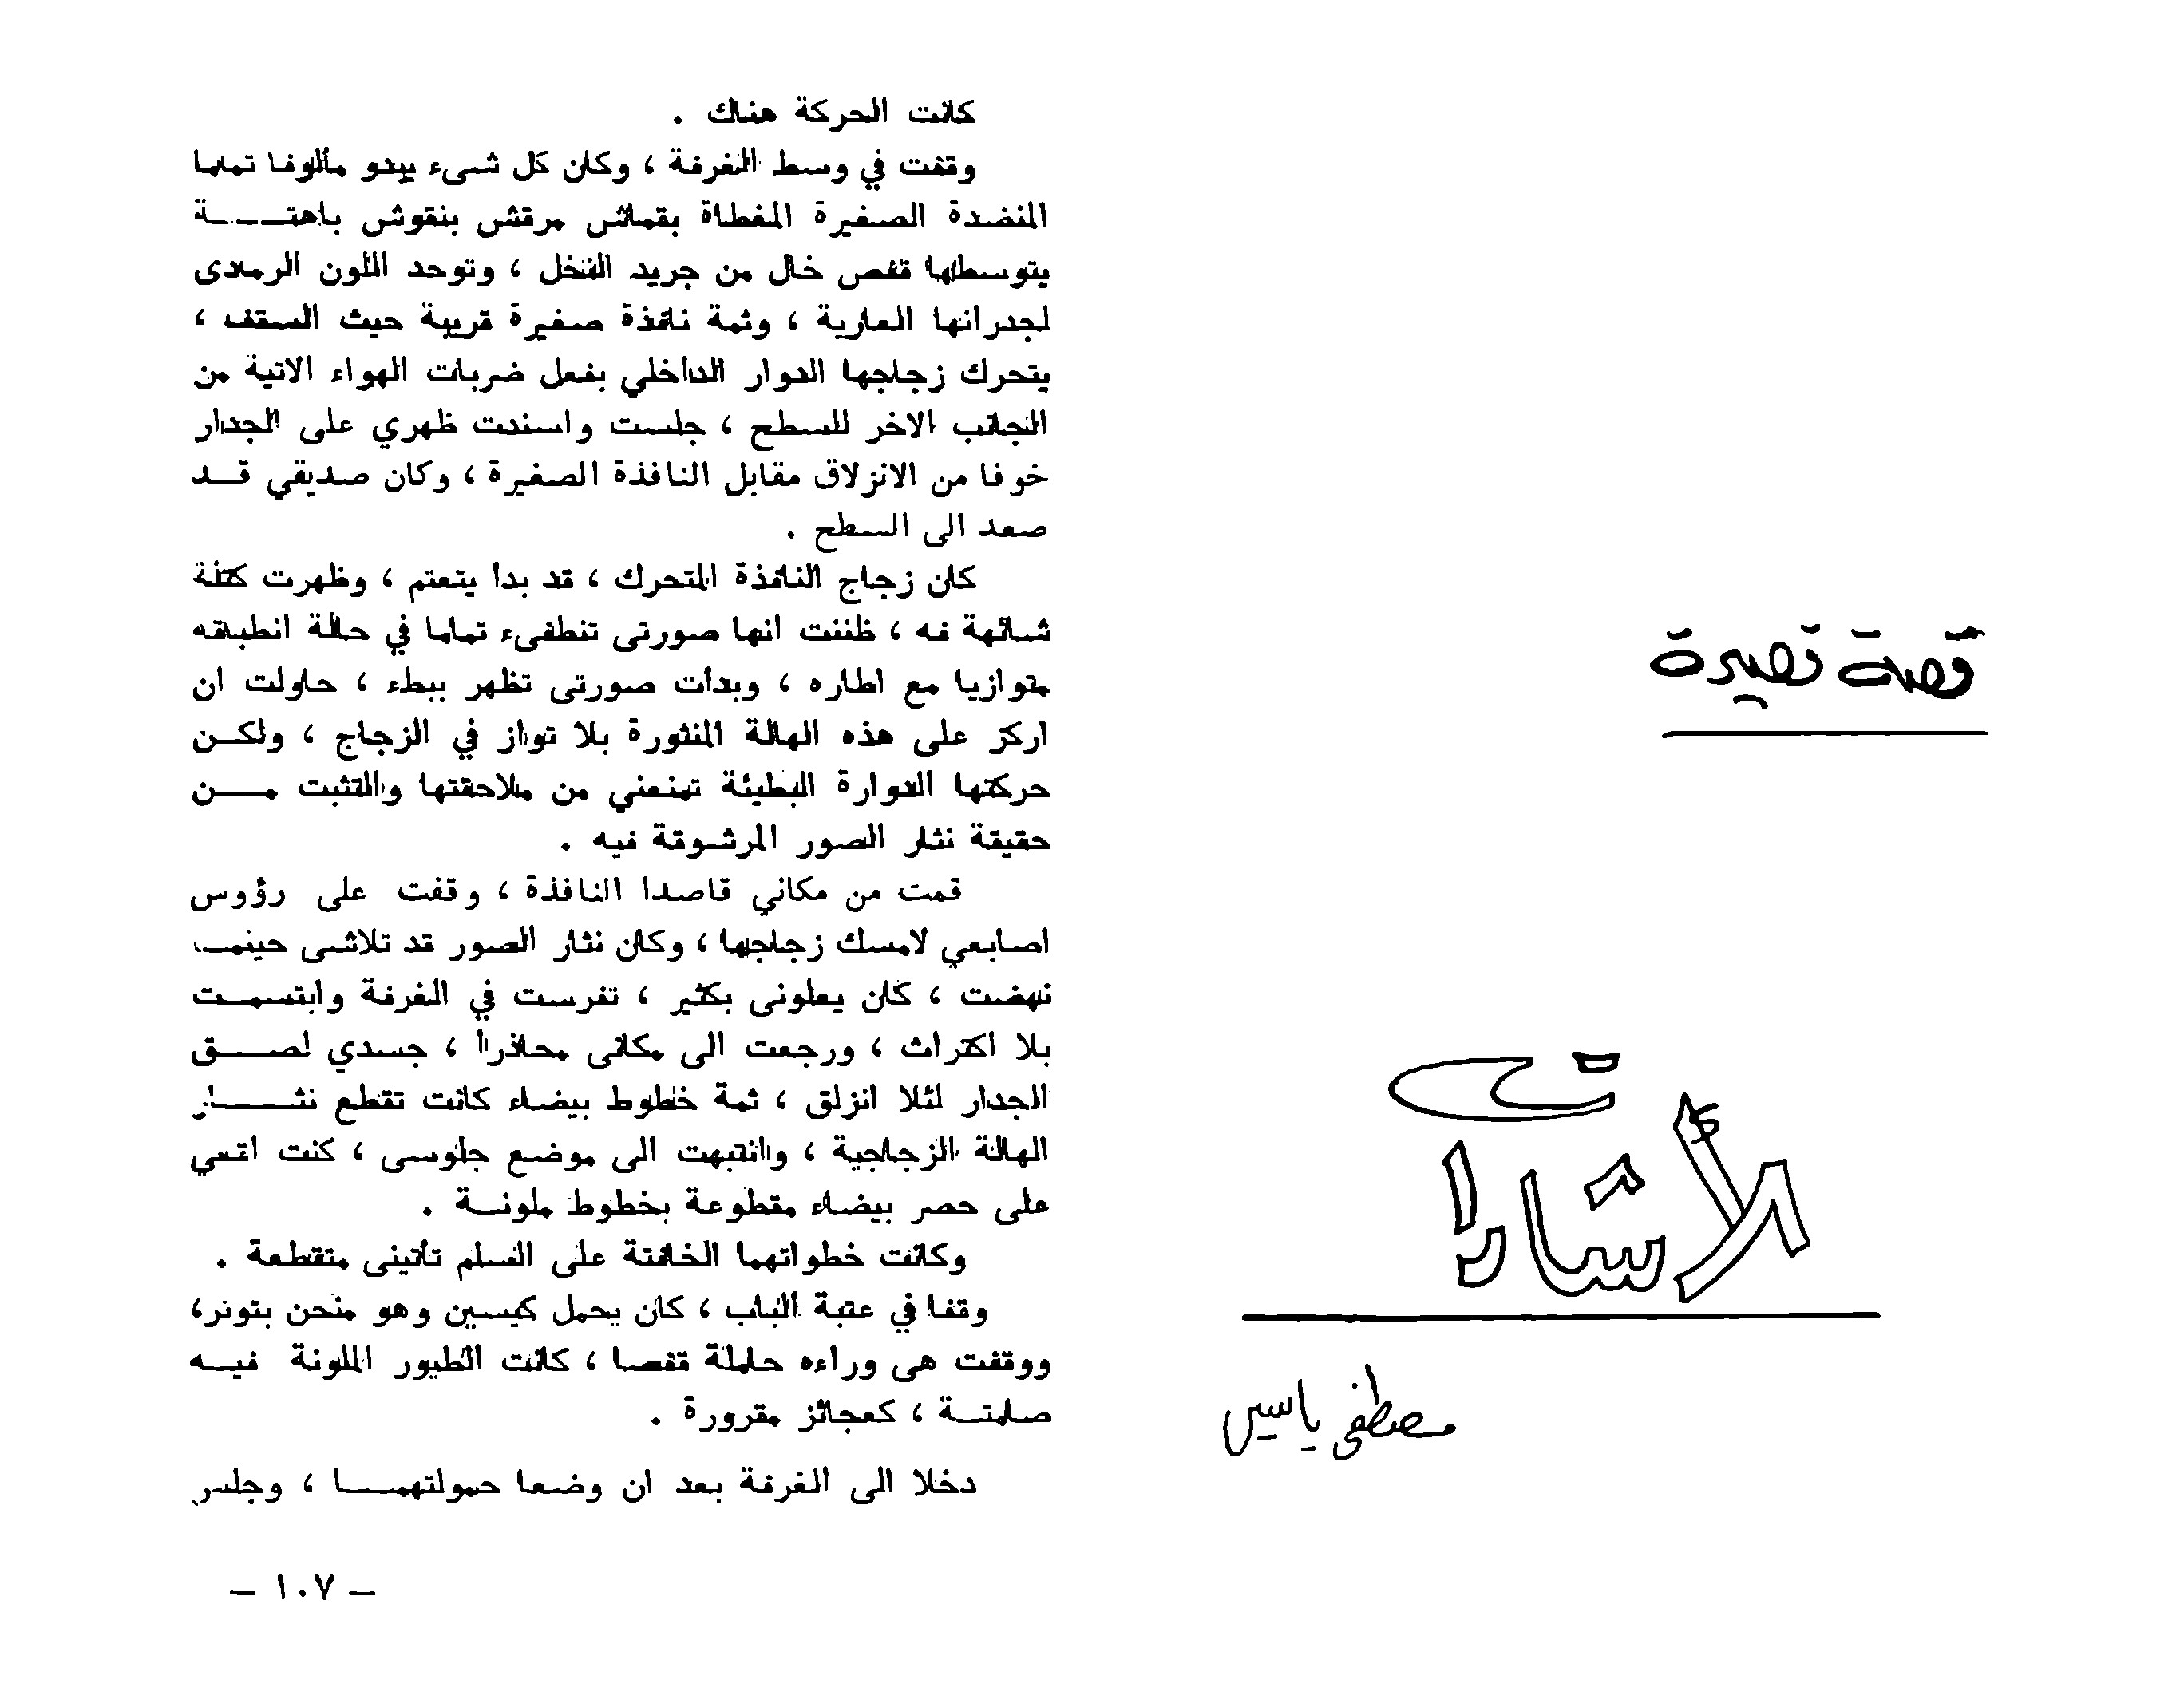 قصة قصيرة
الأشارات
مصطفى ياسين
كانت الحركة هناك .
وقفت في وسط الغرفة ، وكان كل شىء يبدو مألوفا تماما
المنضدة الصغيرة المغطاة بقماش مرقش بنقوش باهتـــة
يتوسطها قفص خال من جريد النخل ، وتوحد اللون الرمادى
لجدرانها العارية ، وثمة نافذة صغيرة قريبة حيث السقف ،
يتحرك زجاجها الدوار الداخلي بفعل ضربات الهواء الاتية من
الجانب الاخر للسطح ، جلست واسندت ظهري على الجدار
خوفا من الانزلاق مقابل النافذة الصغيرة ، وكان صديقي قــد
صعد الى السطح .
كان زجاج النافذة المتحرك ، قد بدأ يتعتم ، وظهرت كتلة
شائهة فه ، ظننت انها صورتى تنطفىء تماما في حالة انطباقه
متوازيا مع اطاره ، وبدأت صورتى تظهر ببطء ، حاولت ان
اركز على هذه الهالة المنثورة بلا تواز في الزجاج ، ولكــن
حركتها الدوارة البطيئة تمنعني من ملاحقتها والتثبت مـــن
حقيقة نثار الصور المرشوقة فيه .
قمت من مكاني قاصدا النافذة ، وقفت على رؤوس
اصابعي لامسك زجاجها ، وكان نثار الصور قد تلاشى حينمــا
نهضت ، كان يعلونى بكثير ، تفرست في الغرفة وابتسمــت
بلا اكتراث ، ورجعت الى مكانى محاذرا ، جسدي لصـــق
الجدار لئلا انزلق ، ثمة خطوط بيضاء كانت تقطع نثــــار
الهالة الزجاجية ، وانتبهت الى موضع جلوسى ، كنت اقعي
على حصر بيضاء مقطوعة بخطوط ملونــة .
وكانت خطواتهما الخافتة على السلم تأتينى متقطعة .
وقفا في عتبة الباب ، كان يحمل كيسين وهو منحن بتوتر،
ووقفت هى وراءه حاملة قفصا ، كانت الطيور الملونة فيــه
صامتــة ، كعجائز مقرورة .
دخلا الى الغرفة بعد ان وضعا حمولتهمـــا ، وجلس
– ١٠٧ –